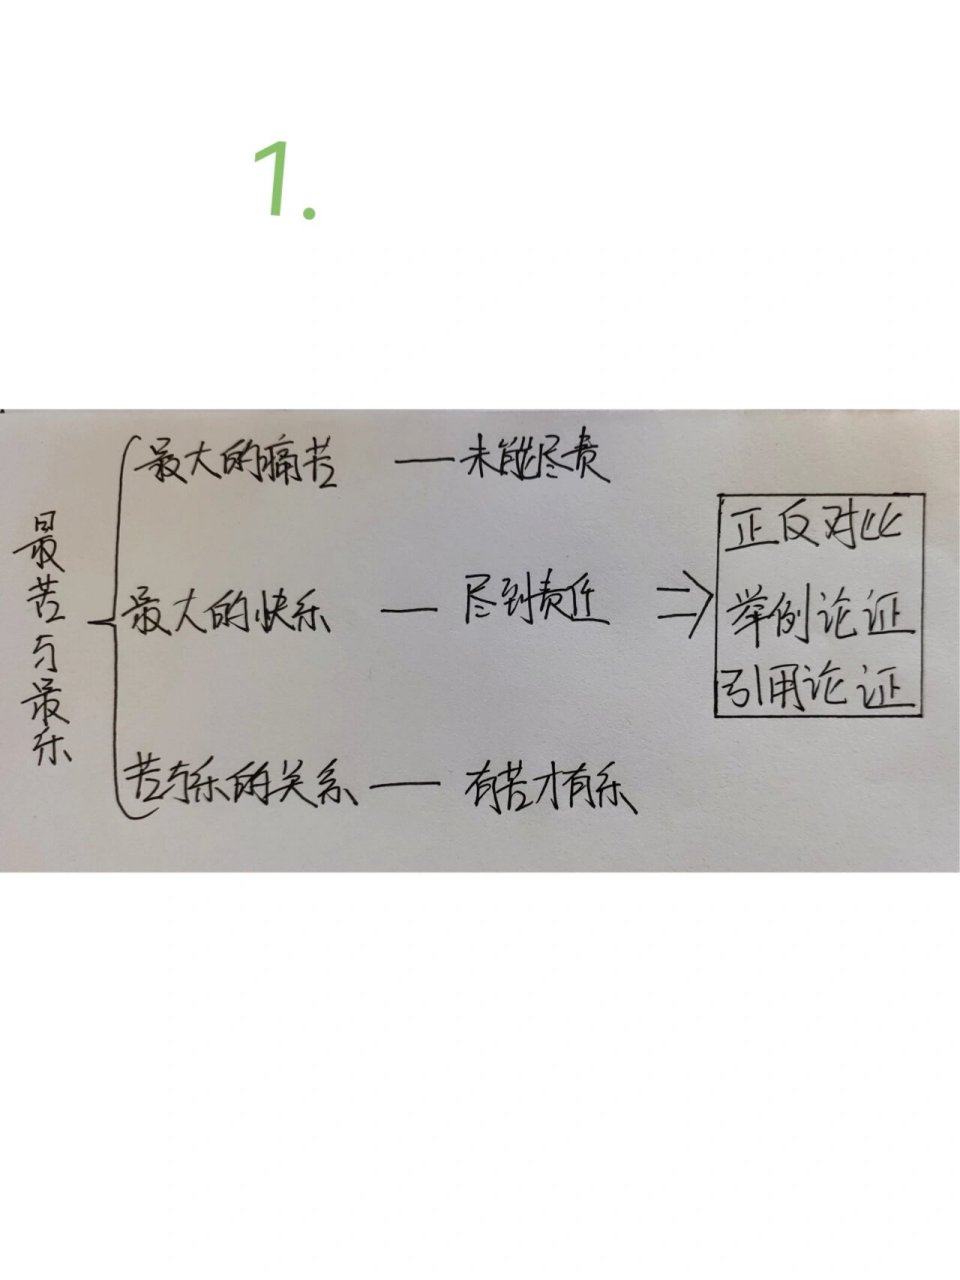 1.
最苦与最乐
最大的痛苦 — 未能尽责
最大的快乐 — 尽到责任
苦与乐的关系 — 有苦才有乐
正反对比
举例论证
引用论证